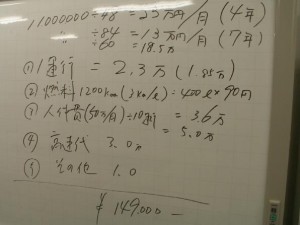 11000000÷48 = 23万円/月 (4年)
〃 ÷84 = 13万円/月 (7年)
÷60 = 18.5万
① 1運行 = 2.3万 (1.85万)
② 燃料 1200km (3km/ℓ) = 400ℓ×90円
= 3.6万
③ 人件費(50万/月)÷10運行 = 5.0万
④ 高速代 3.0万
⑤ その他 1.0
¥149.000−